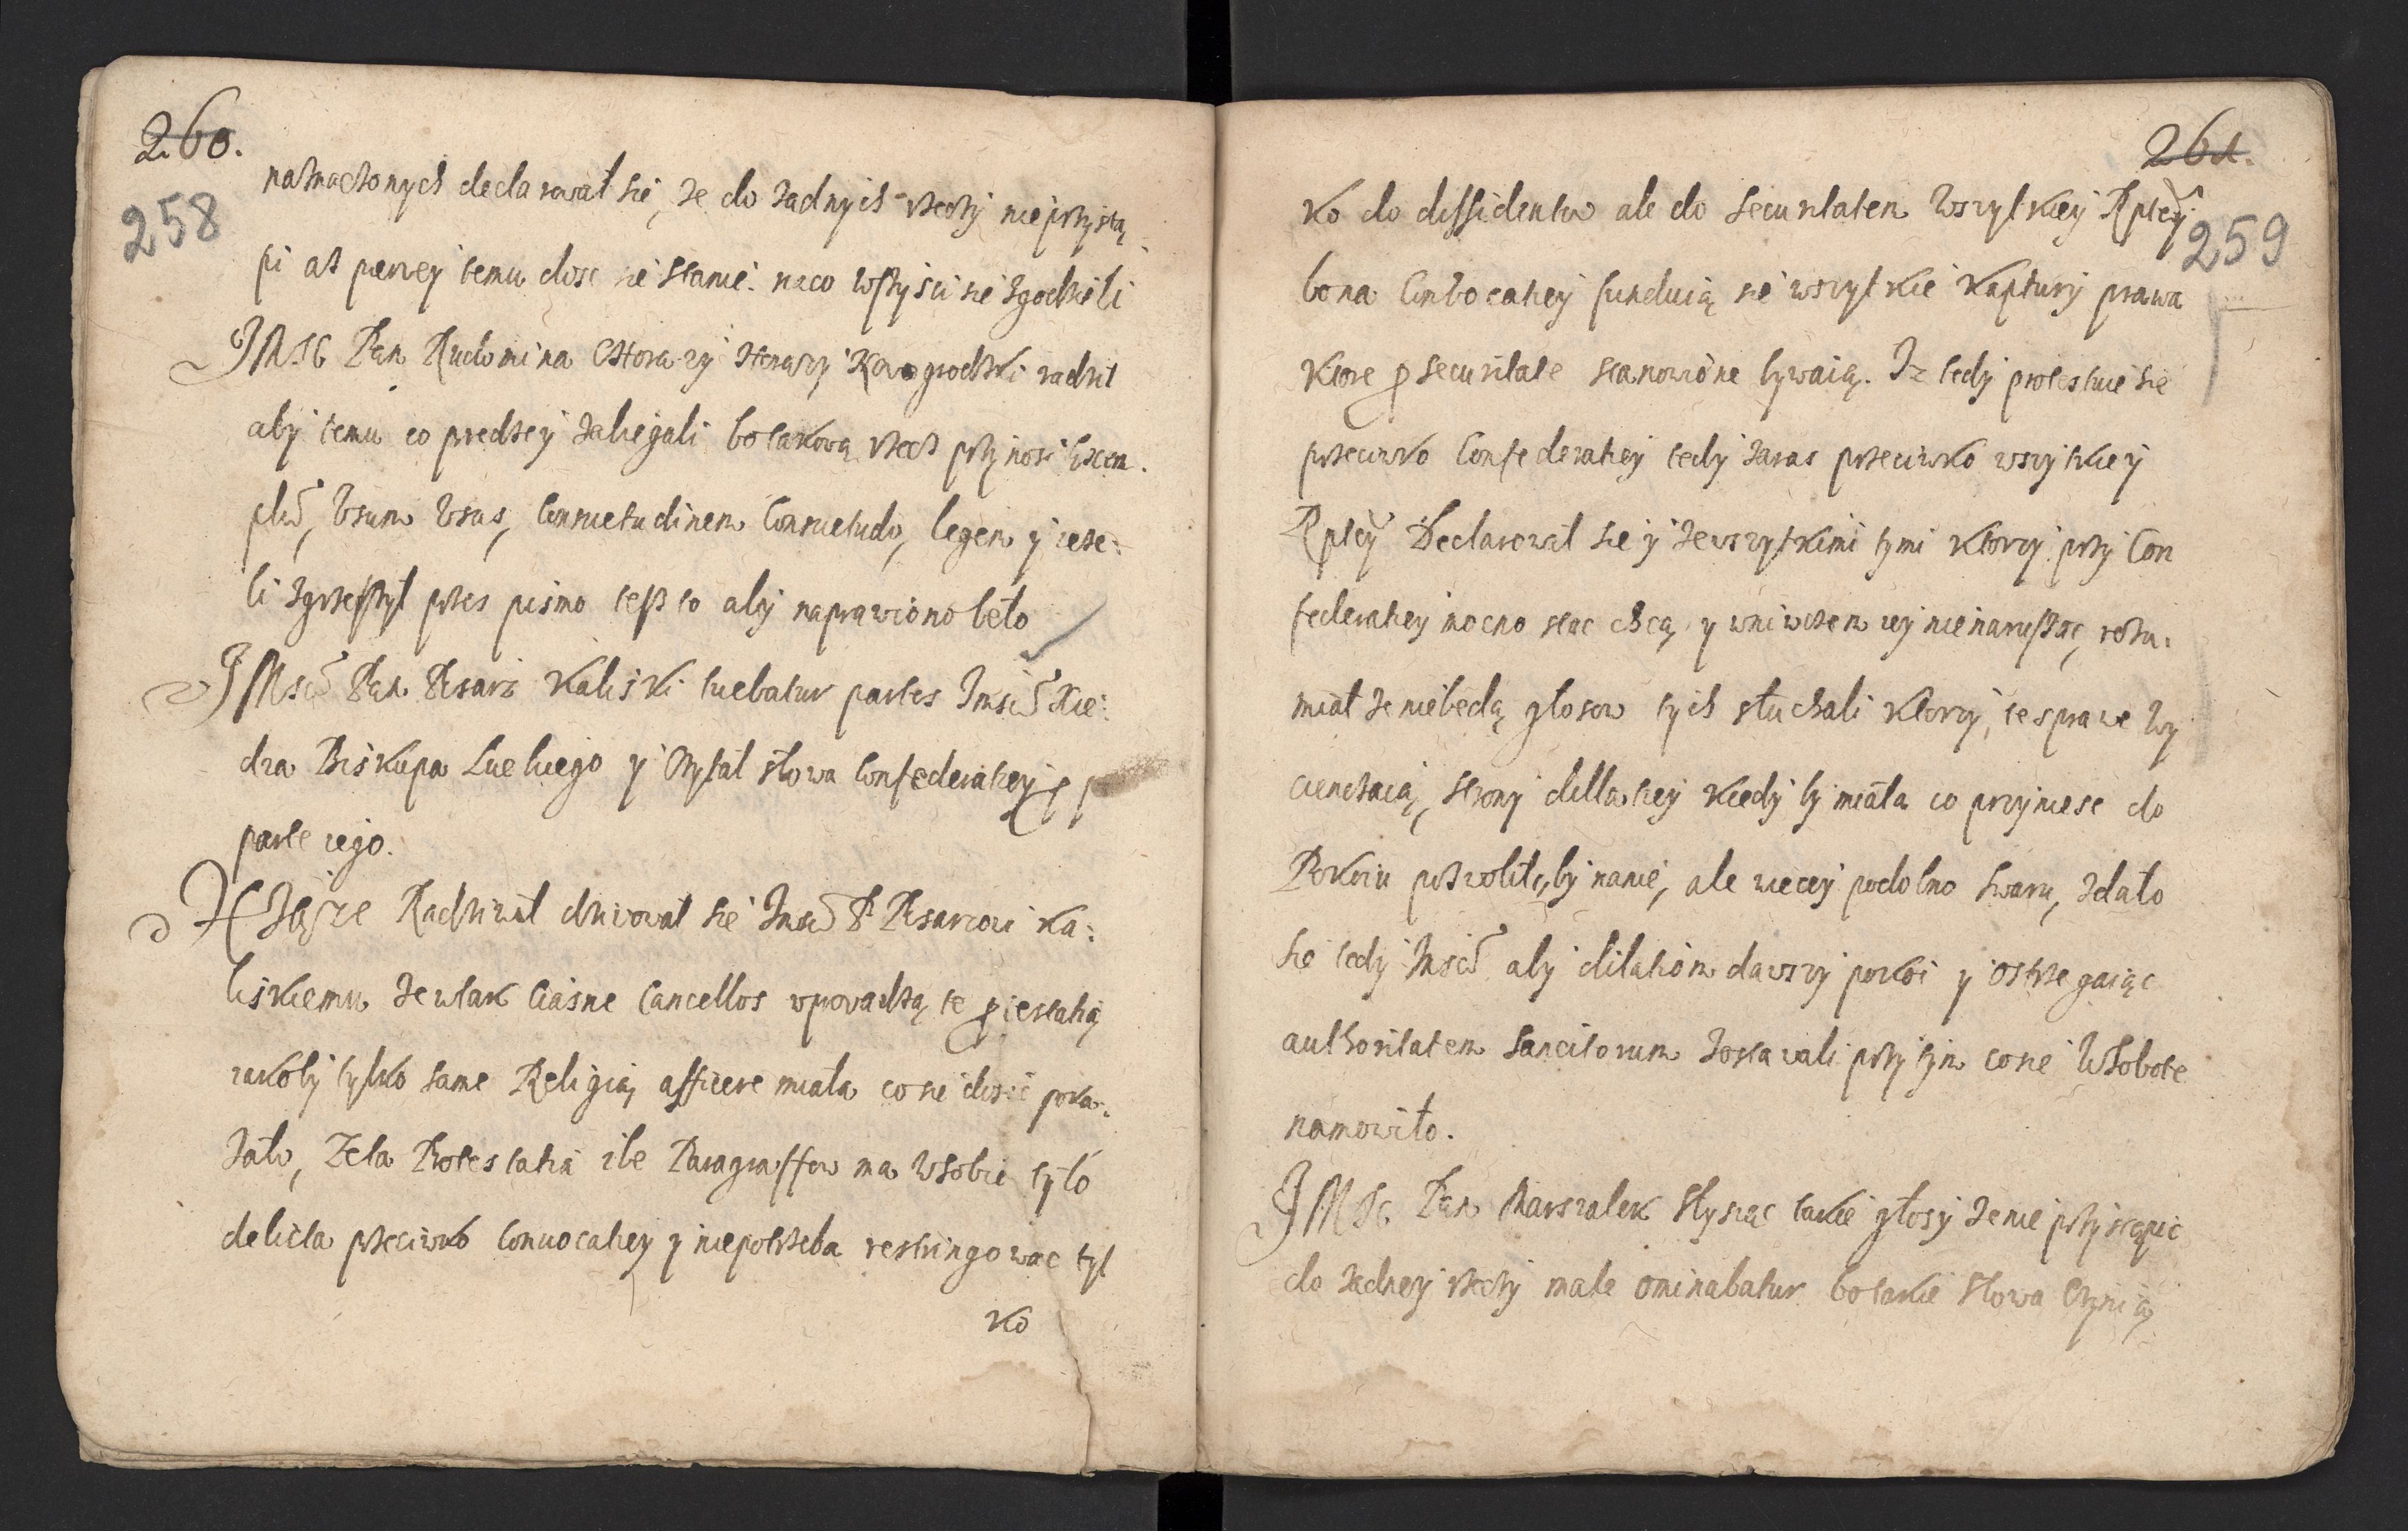 260.
258
naznaczonych declarował sie, ze do zadnych rzeczy nie przystą
pi asz pierzey temu dosc sie stanie. na co wszyscy sie zgodzili
JMSC Pan Rudomina Chorązy Starszy Nowogrodzki radził
aby temu co predzey zabiegali bo takową rzecz przynosi Exem.
plũ, Vsum Vsus, Consuetudinem Consuetudo, legem y ieze:
li zgrzeszył przes pismo tesz to aby naprawiono beło
JMsći Pan Pisarz Kaliski tuebatur partes Jmsci Xie:
dza Biskupa Luckiego y Czytał słowa Confederatiey p
parte iego.
Xsiąze Radziwił dziwował sie Jmsci P Pisarzowi Ka:
liskiemu ze w tak ciasne Cancellos wprowadzą te protestatią
iakoby tylko same Religią afficere miała co sie dosić poka:
zało, Ze ta Protestatia ile Paragraffow ma w sobie tylo
delicta przeciwko Conuocatiey y nie potrzeba restringowac tyl
ko
261.
259
ko do dissidentow ale do securitatem Wszytkiey Rptey
bo na Conuocatiey funduią sie wszytkie Kaptury prawa
ktore pro securitate stanowione bywaią. Iz tedy protestuie sie
przeciwko Confederatiey tedy zaras przeciwko wszytkiey
Rptey Declarował sie y ze wszytkimi tymi ktorzy przy Con
federatiey mocno stac chcą y w niwczem iey nie naruszac, rozu:
miał ze nie bedą głosow tych słuchali ktorzy te sprawe wy
cienczaią, strony dillatiey kiedy by miała co przyniesc do
Pokoiu pozwoliłby na nie, ale wiecey podobno swaru, zdało
sie tedy Jmsci aby dilatiom dawszy pokoi y ostrzegaiąc
authoritatem Sancitorum zostawali przy tym co sie W Sobote
namowiło.
JMSC Pan Marszalek Słysząc takie głosy ze nie przystąpic
do zadney rzeczy male ominabatur bo takie słowa Czynią